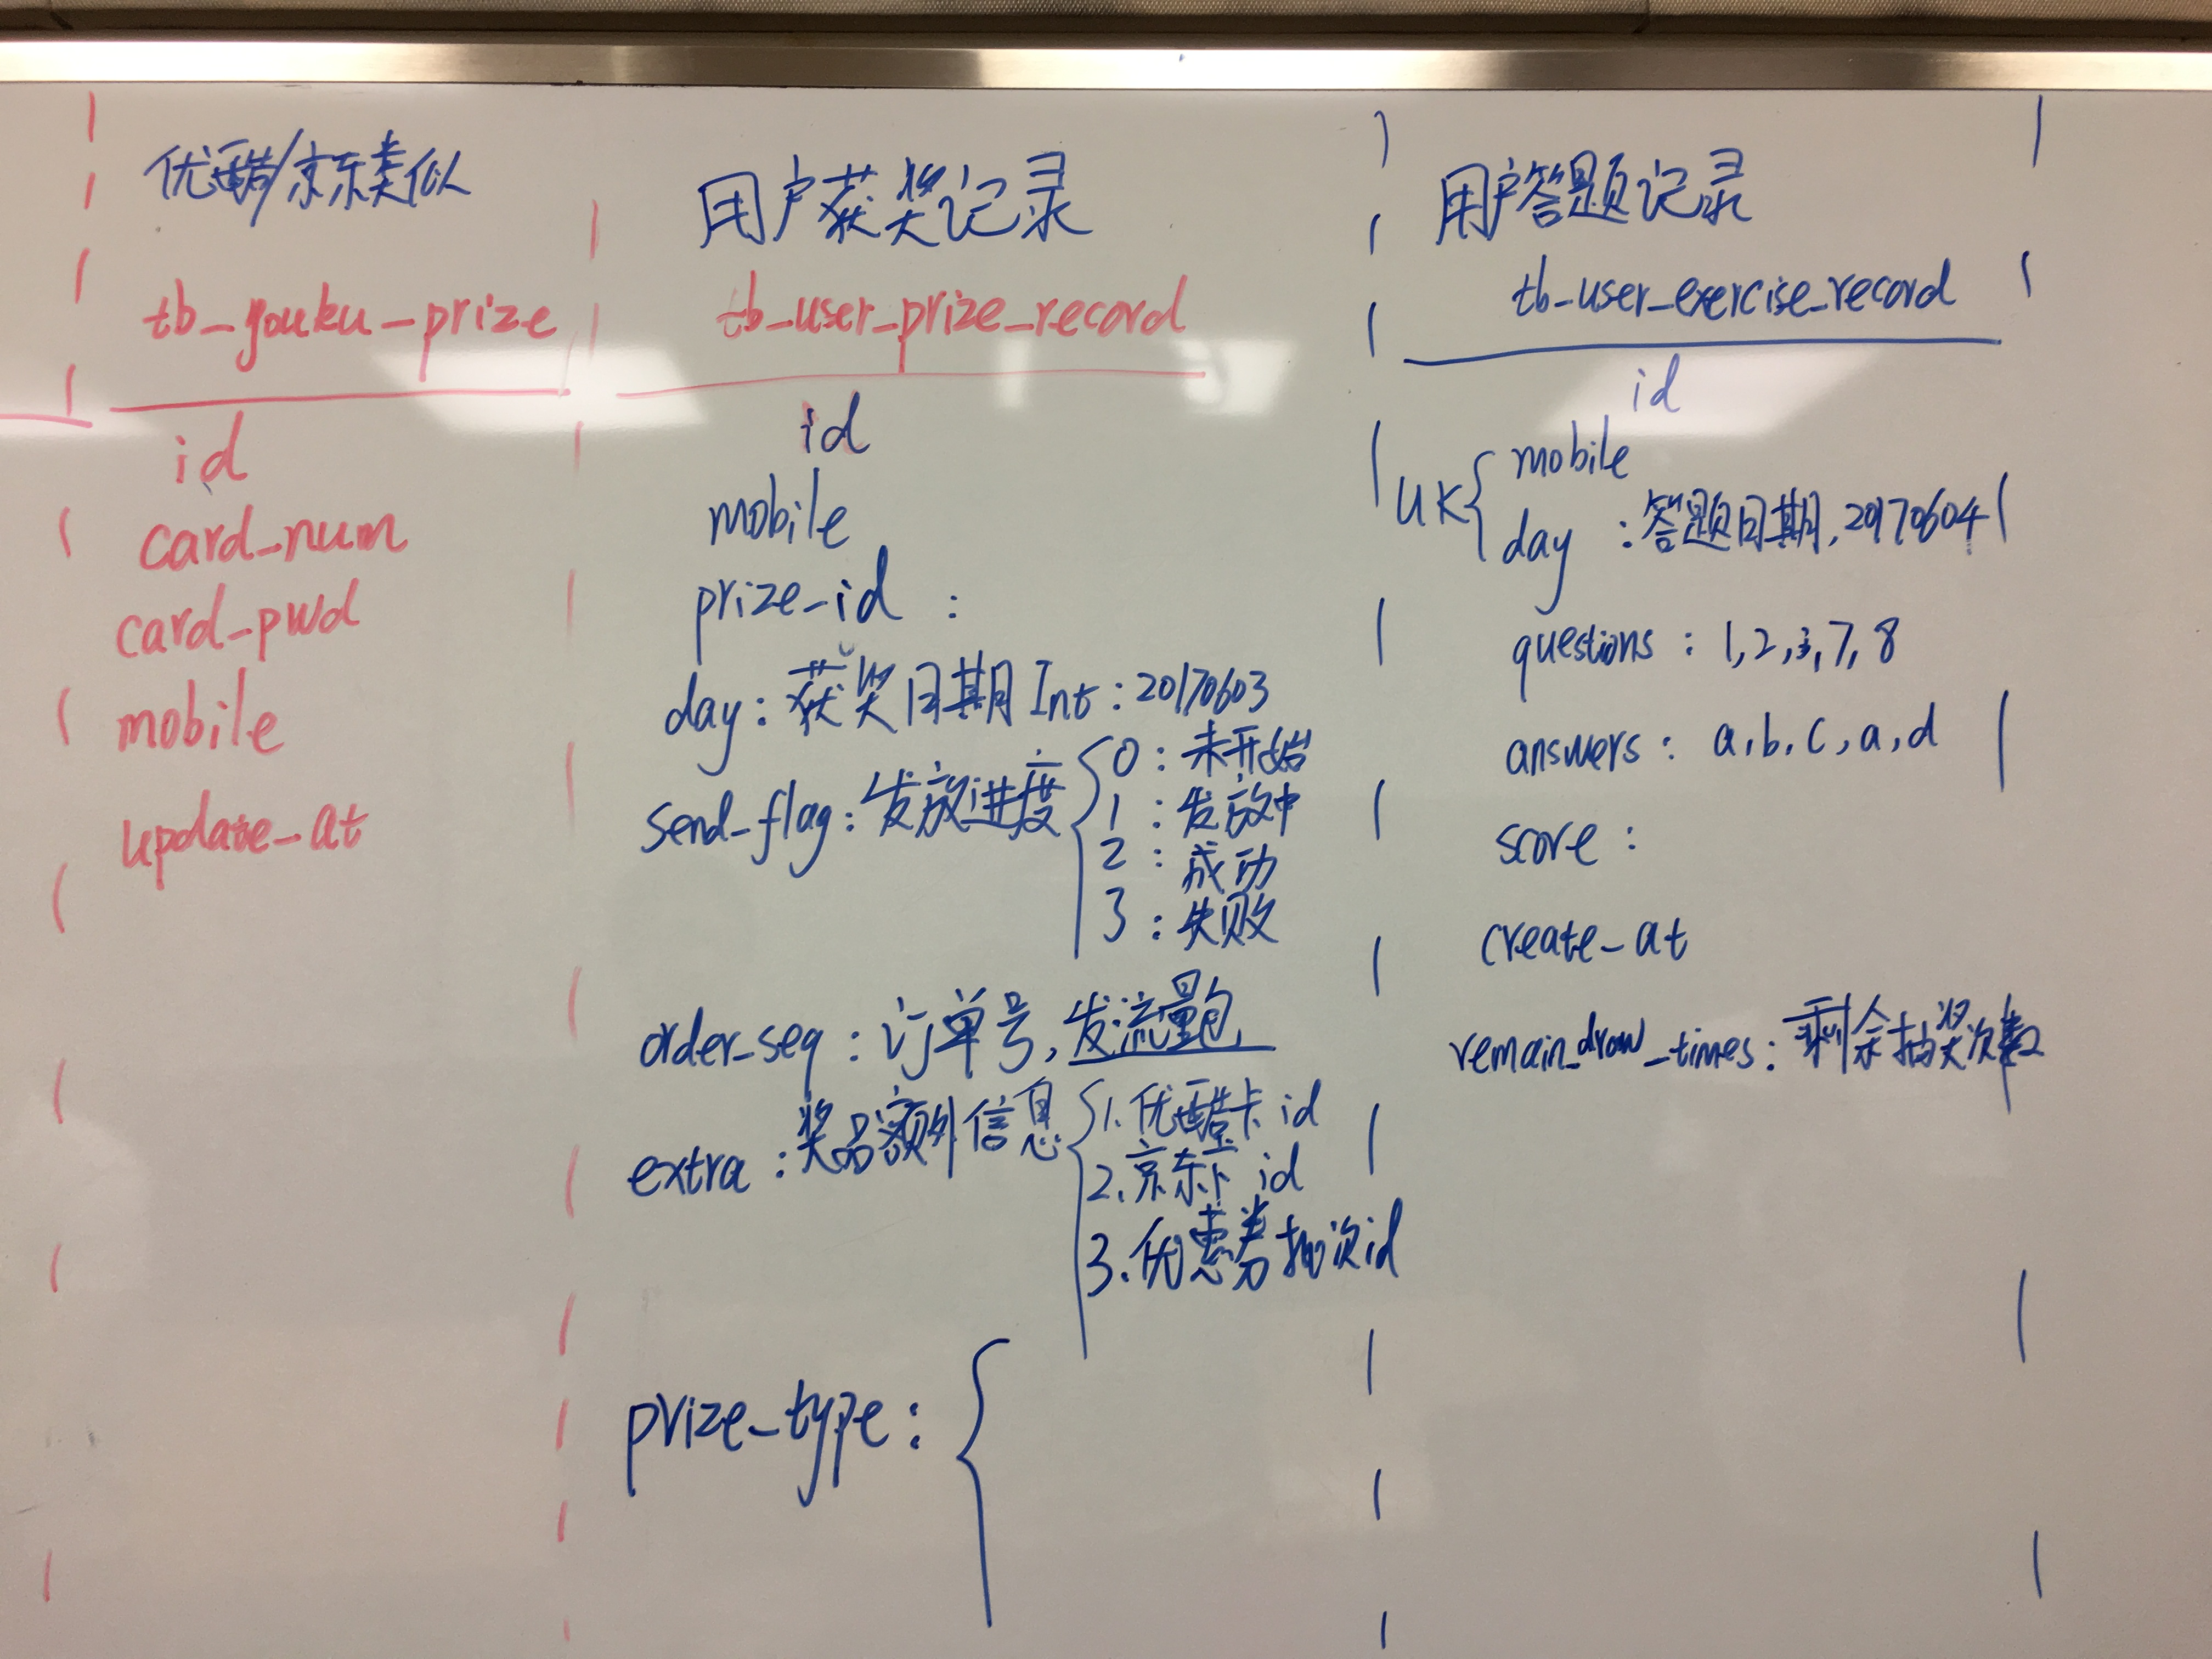 优酷/京东类似
tb_youku_prize
id
card_num
card_pwd
mobile
update_at
用户获奖记录
tb_user_prize_record
id
mobile
prize_id :
day : 获奖日期 Int : 20170603
send_flag : 发放进度
0 : 未开始
1 : 发放中
2 : 成功
3 : 失败
order_seq : 订单号, 发流量包
extra : 奖品额外信息
1. 优酷卡 id
2. 京东卡 id
3. 优惠券批次id
prize_type :
用户答题记录
tb_user_exercise_record
id
UK
mobile
day : 答题日期, 20170604
questions : 1,2,3,7,8
answers : a,b,c,a,d
score :
create_at
remain_draw_times : 剩余抽奖次数